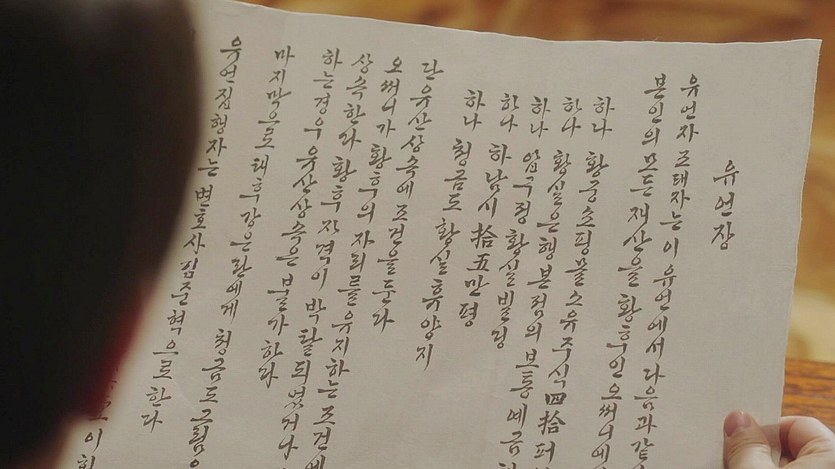 유언장
유언자 조태자는 이 유언에서 다음과 같
본인의 모든 재산을 황후인 오써니에
하나 황궁쇼핑몰 소유주식 四拾 퍼
하나 황실은행 본점의 보통예금
하나 압구정 황실빌딩
하나 하남시 拾五만평
하나 청금도 황실휴양지
단 유산상속에 조건을 둔다
오써니가 황후의 자리를 유지하는 조건에
상속한다 황후 자격이 박탈되었거나
하는 경우 유산상속은 불가하다
마지막으로 태후 강은란에게 청금도
유언집행자는 변호사 김준혁으로 한다